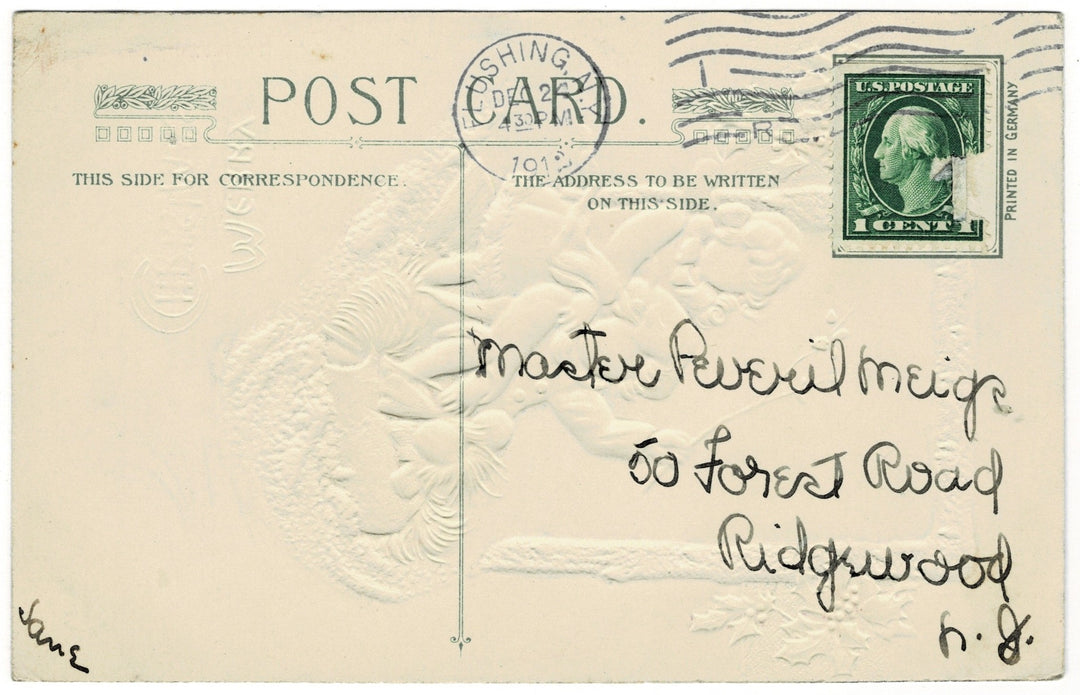 POST CARD.
FLUSHING, N.Y.
DEC 2
4 30 PM
1912
THIS SIDE FOR CORRESPONDENCE.
THE ADDRESS TO BE WRITTEN
ON THIS SIDE.
U.S. POSTAGE
1 CENT 1
PRINTED IN GERMANY
Master Peveril Meigs
50 Forest Road
Ridgewood
N. J.
Jane